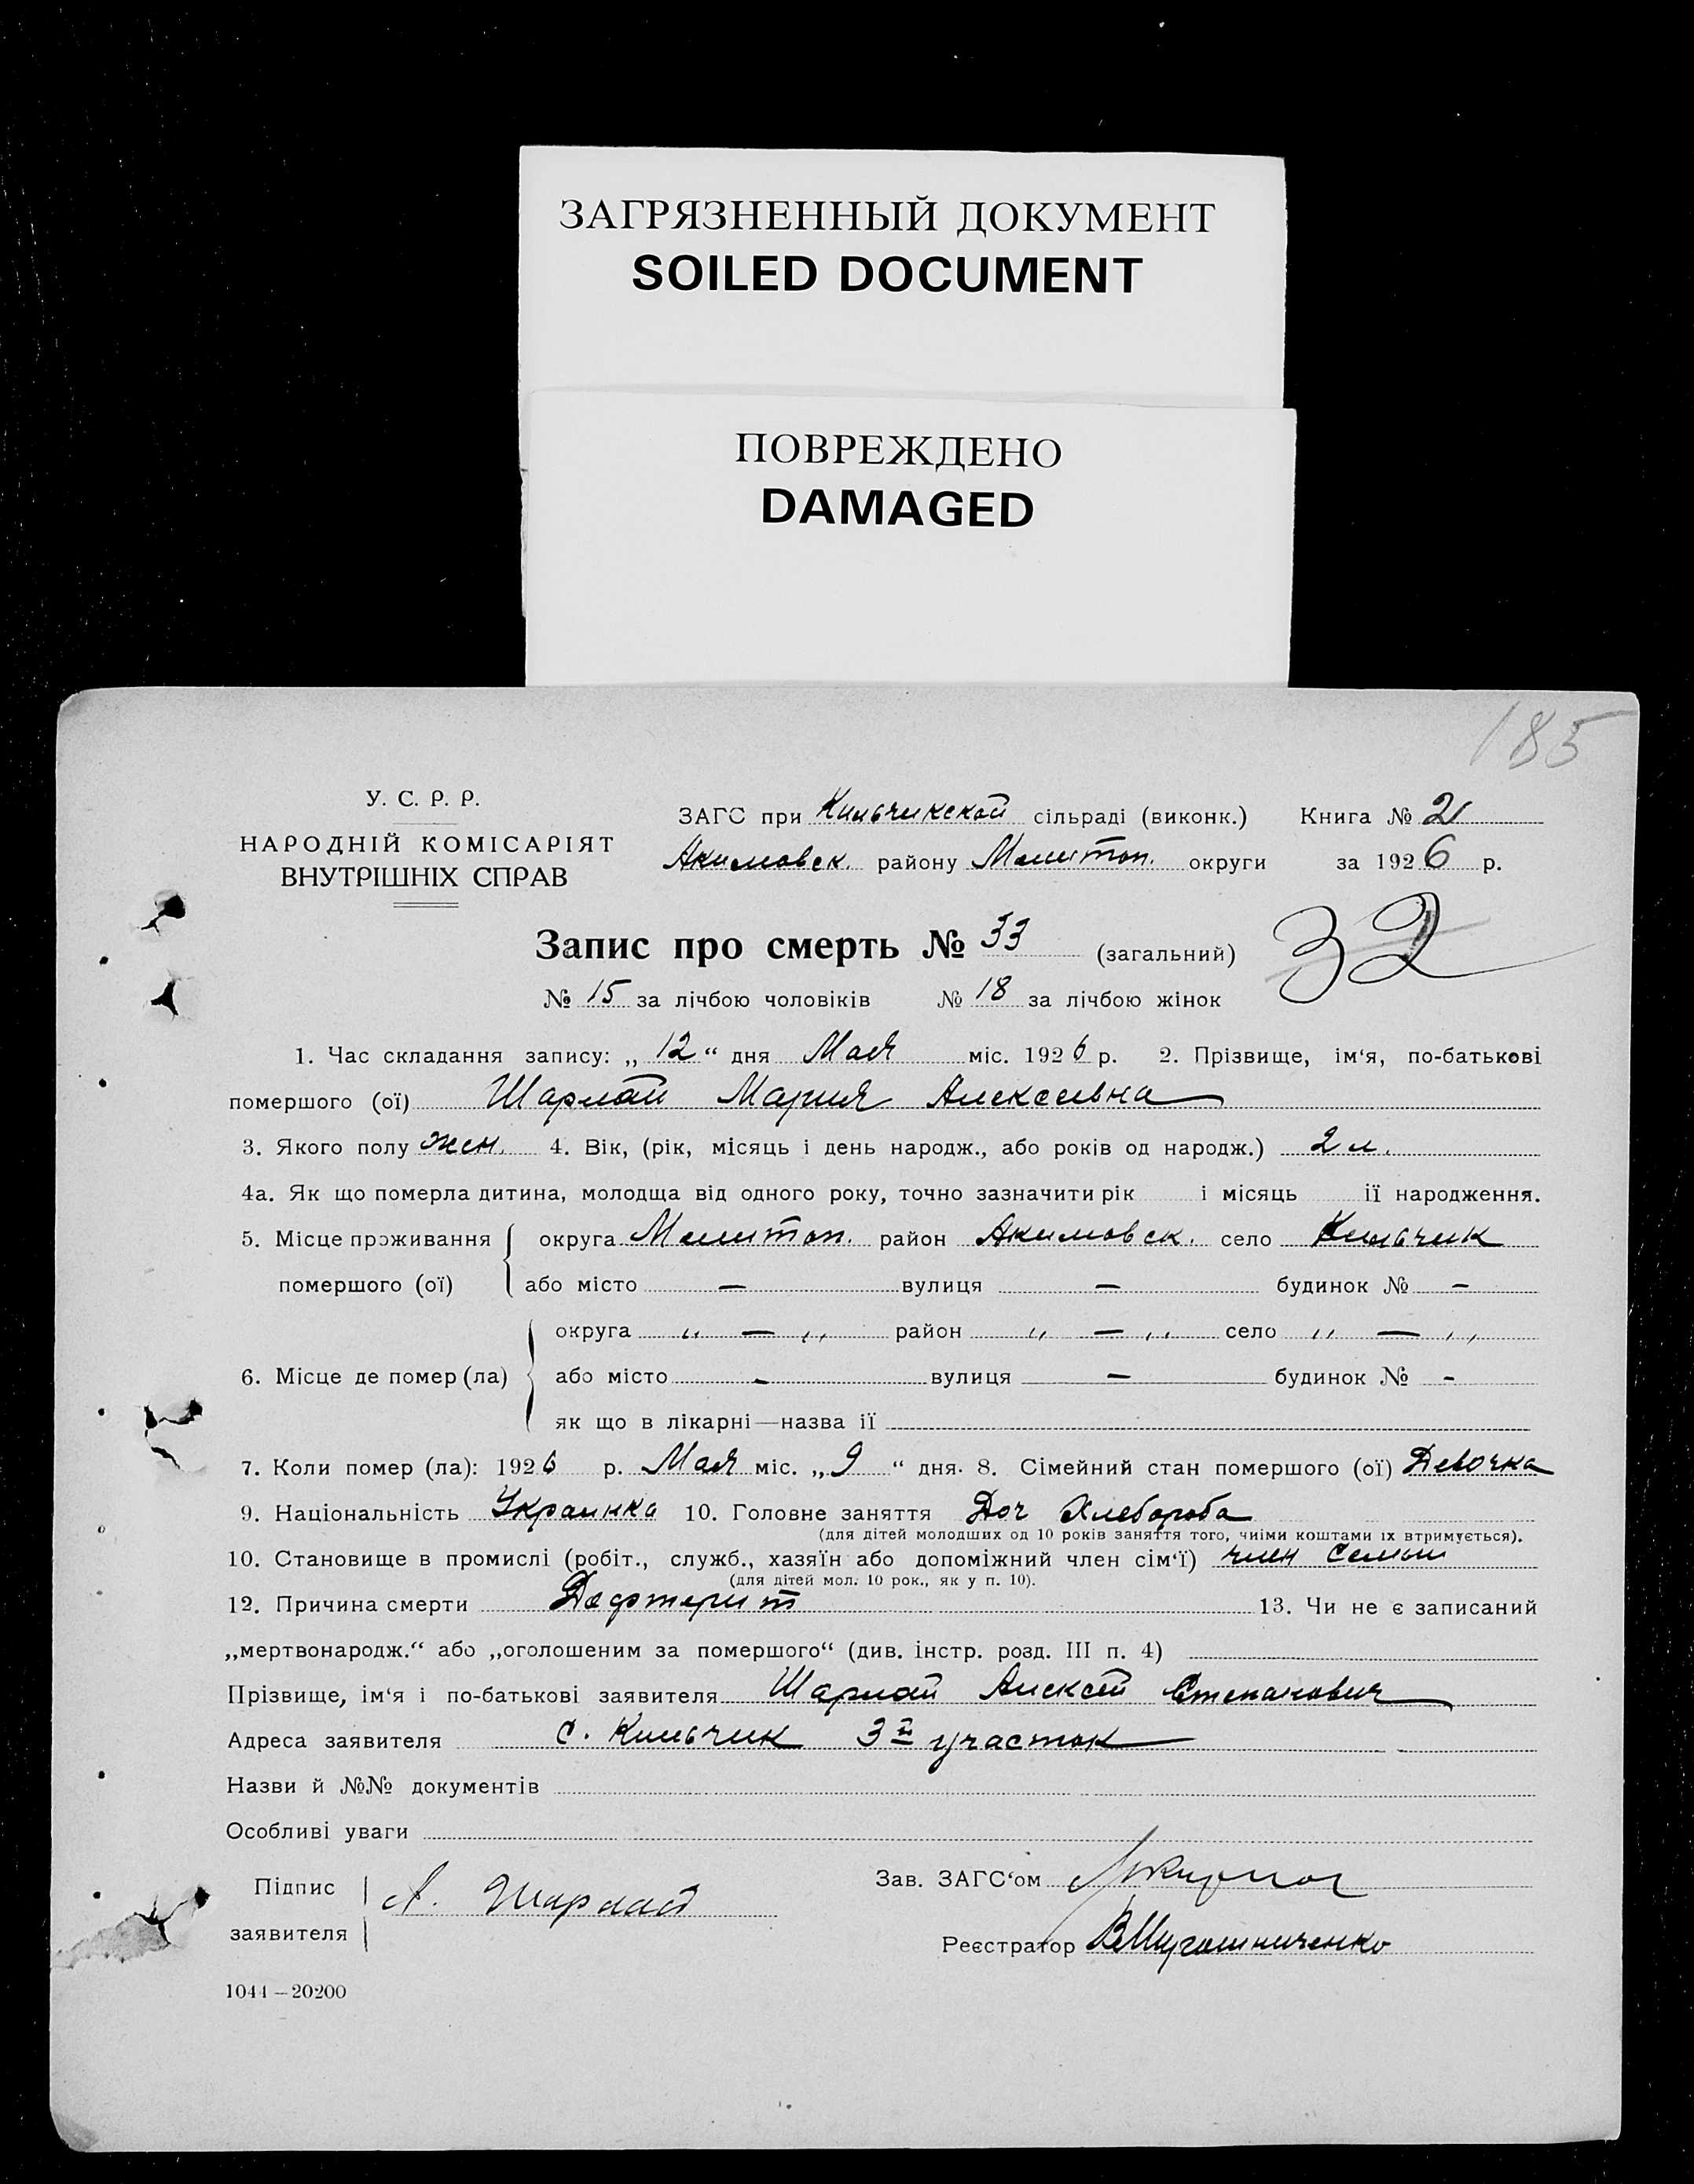 ЗАГРЯЗНЕННЫЙ ДОКУМЕНТ
SOILED DOCUMENT
ПОВРЕЖДЕНО
DAMAGED
185
У. С. Р. Р.
НАРОДНІЙ КОМІСАРІЯТ
ВНУТРІШНІХ СПРАВ
ЗАГС при Кильчикской сільраді (виконк.) Книга № 2
Акимовск. району Мелитоп. округи за 1926 р.
Запис про смерть № 33 (загальний) 32
№ 15 за лічбою чоловіків № 18 за лічбою жінок
1. Час складання запису: „12“ дня Мая міс. 1926 р. 2. Прізвище, ім‘я, по-батькові
помершого (ої) Шарлай Мария Алексеевна
3. Якого полу жен. 4. Вік, (рік, місяць і день народж., або років од народж.) 2 л.
4а. Як що померла дитина, молодща від одного року, точно зазначити рік і місяць ії народження.
5. Місце проживання округа Мелитоп. район Акимовск. село Кильчик
помершого (ої) або місто — вулиця — будинок № —
округа „ — „ район „ — „ село „ — „
6. Місце де помер (ла) або місто - вулиця — будинок № -
як що в лікарні—назва ії
7. Коли помер (ла): 1926 р. Мая міс. „9“ дня. 8. Сімейний стан помершого (ої) Девочка
9. Національність Украинка 10. Головне заняття Доч Хлебороба
(для дітей молодших од 10 років заняття того, чиїми коштами іх втримується).
10. Становище в промислі (робіт., служб., хазяїн або допоміжний член сім‘ї) член Семьи
(для дітей мол. 10 рок., як у п. 10).
12. Причина смерти Дефтерит 13. Чи не є записаний
„мертвонародж.“ або „оголошеним за помершого“ (див. інстр. розд. III п. 4)
Прізвище, ім‘я і по-батькові заявителя Шарлай Алексей Степанович
Адреса заявителя с. Кильчик 3й участок
Назви й №№ документів
Особливі уваги
Підпис А. Шарлай Зав. ЗАГС‘ом
заявителя Реєстратор
1044—20200